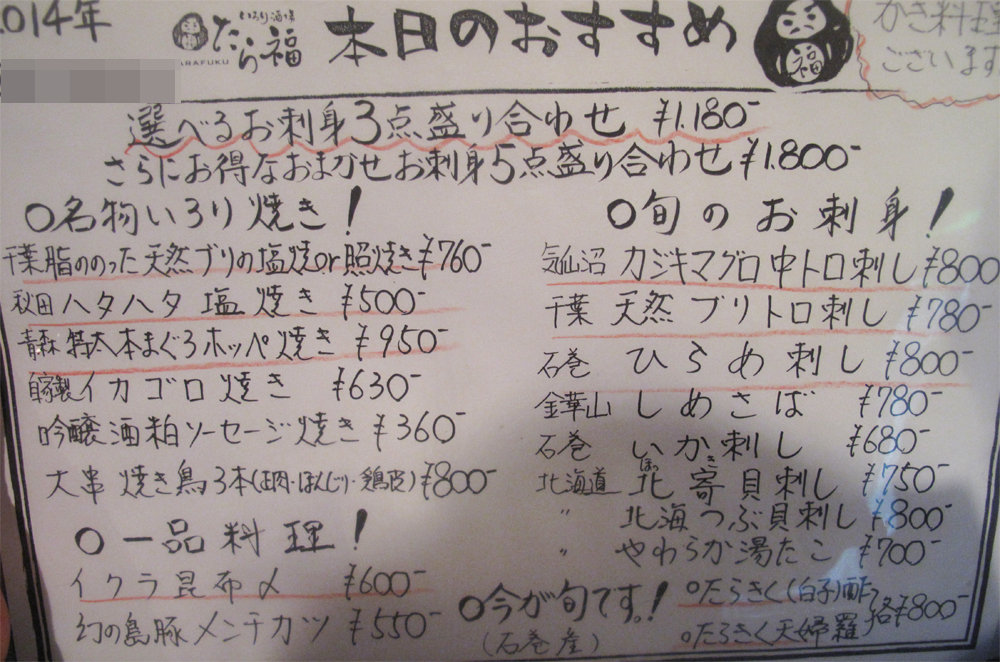 2014年
いろり酒場
たら福
TARAFUKU
本日のおすすめ
福
かき料理
ございます
選べるお刺身3点盛り合わせ ¥1.180-
さらにお得なおまかせお刺身5点盛り合わせ ¥1.800-
○名物いろり焼き!
千葉 脂ののった天然ブリの塩焼or照焼き ¥760-
秋田 ハタハタ塩焼き ¥500-
青森 特大本まぐろホッペ焼き ¥950-
自家製 イカゴロ焼き ¥630-
吟醸酒粕ソーセージ焼き ¥360-
大串焼き鳥3本(正肉・ぼんじり・鶏皮) ¥800-
○一品料理!
イクラ昆布〆 ¥600-
幻の島豚メンチカツ ¥550-
○旬のお刺身!
気仙沼 カジキマグロ中トロ刺し ¥800
千葉 天然ブリトロ刺し ¥780-
石巻 ひらめ刺し ¥800-
金華山 しめさば ¥780-
石巻 いか刺し ¥680-
北海道 北寄貝刺し ¥750-
ほっき
〃 北海つぶ貝刺し ¥800-
〃 やわらか湯たこ ¥700-
○今が旬です!
(石巻産)
○たらきく(白子)酢
○たらきく天婦羅
各¥800-